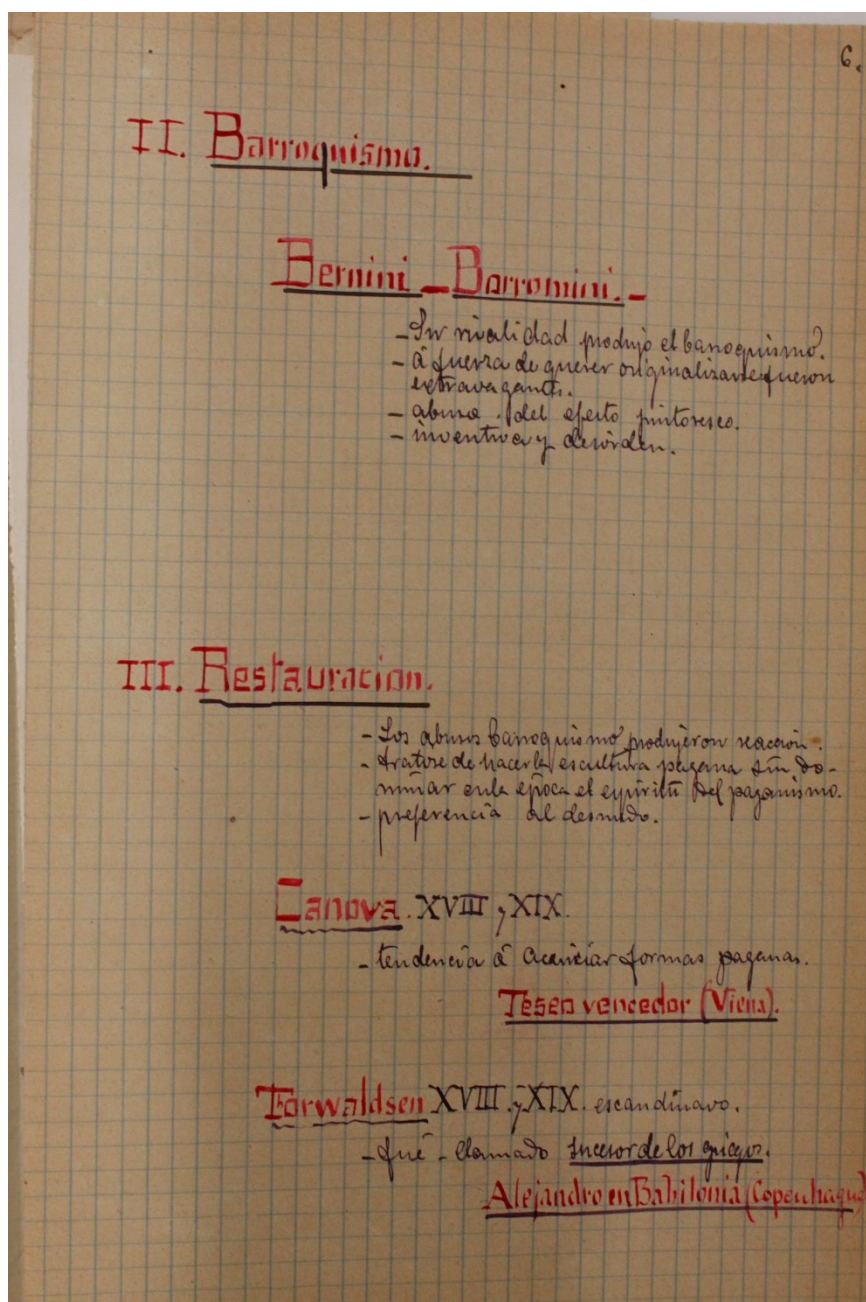 6.
II. Barroquismo.
Bernini - Borromini. -
- Su rivalidad produjo el barroquismo.
- á fuerza de querer originalizarse fueron
extravagantes.
- abuso del efecto pintoresco.
- inventiva y desórden.
III. Restauracion.
- Los abusos barroquismo produjeron reacción.
- tratóse de hacer la escultura pagana sin do-
minar en la época el espíritu del paganismo.
- preferencia al desnudo.
Canova. XVIII y XIX.
- tendencia á acariciar formas paganas.
Teseo vencedor (Viena).
Torwaldsen XVIII. y XIX. escandinavo.
- fué - llamado sucesor de los griegos.
Alejandro en Babilonia (Copenhague)